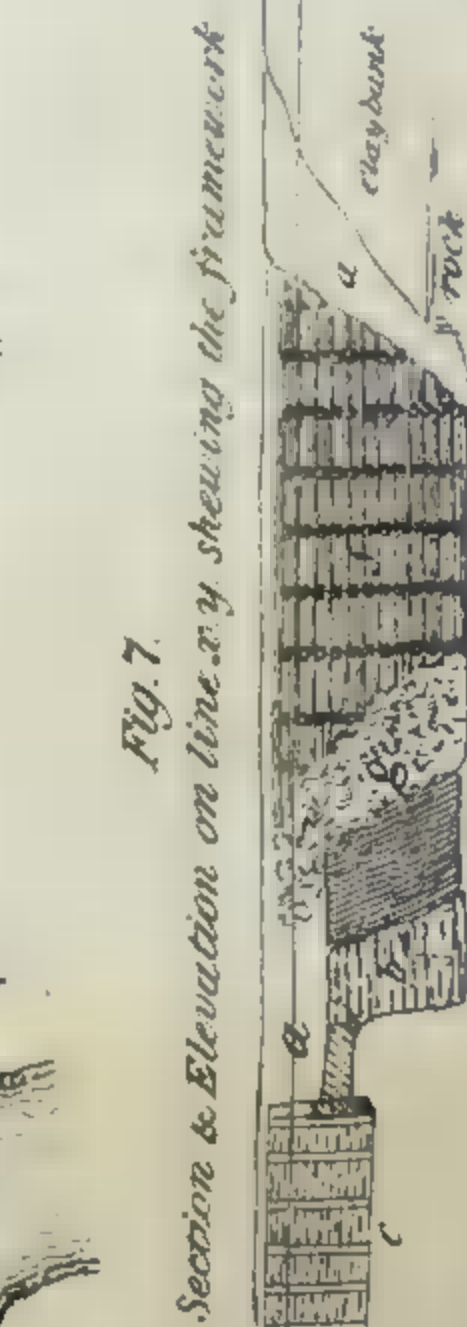 Fig. 7.
Section & Elevation on line x y shewing the framework
claybank
a
rock
f
g
a
b
c